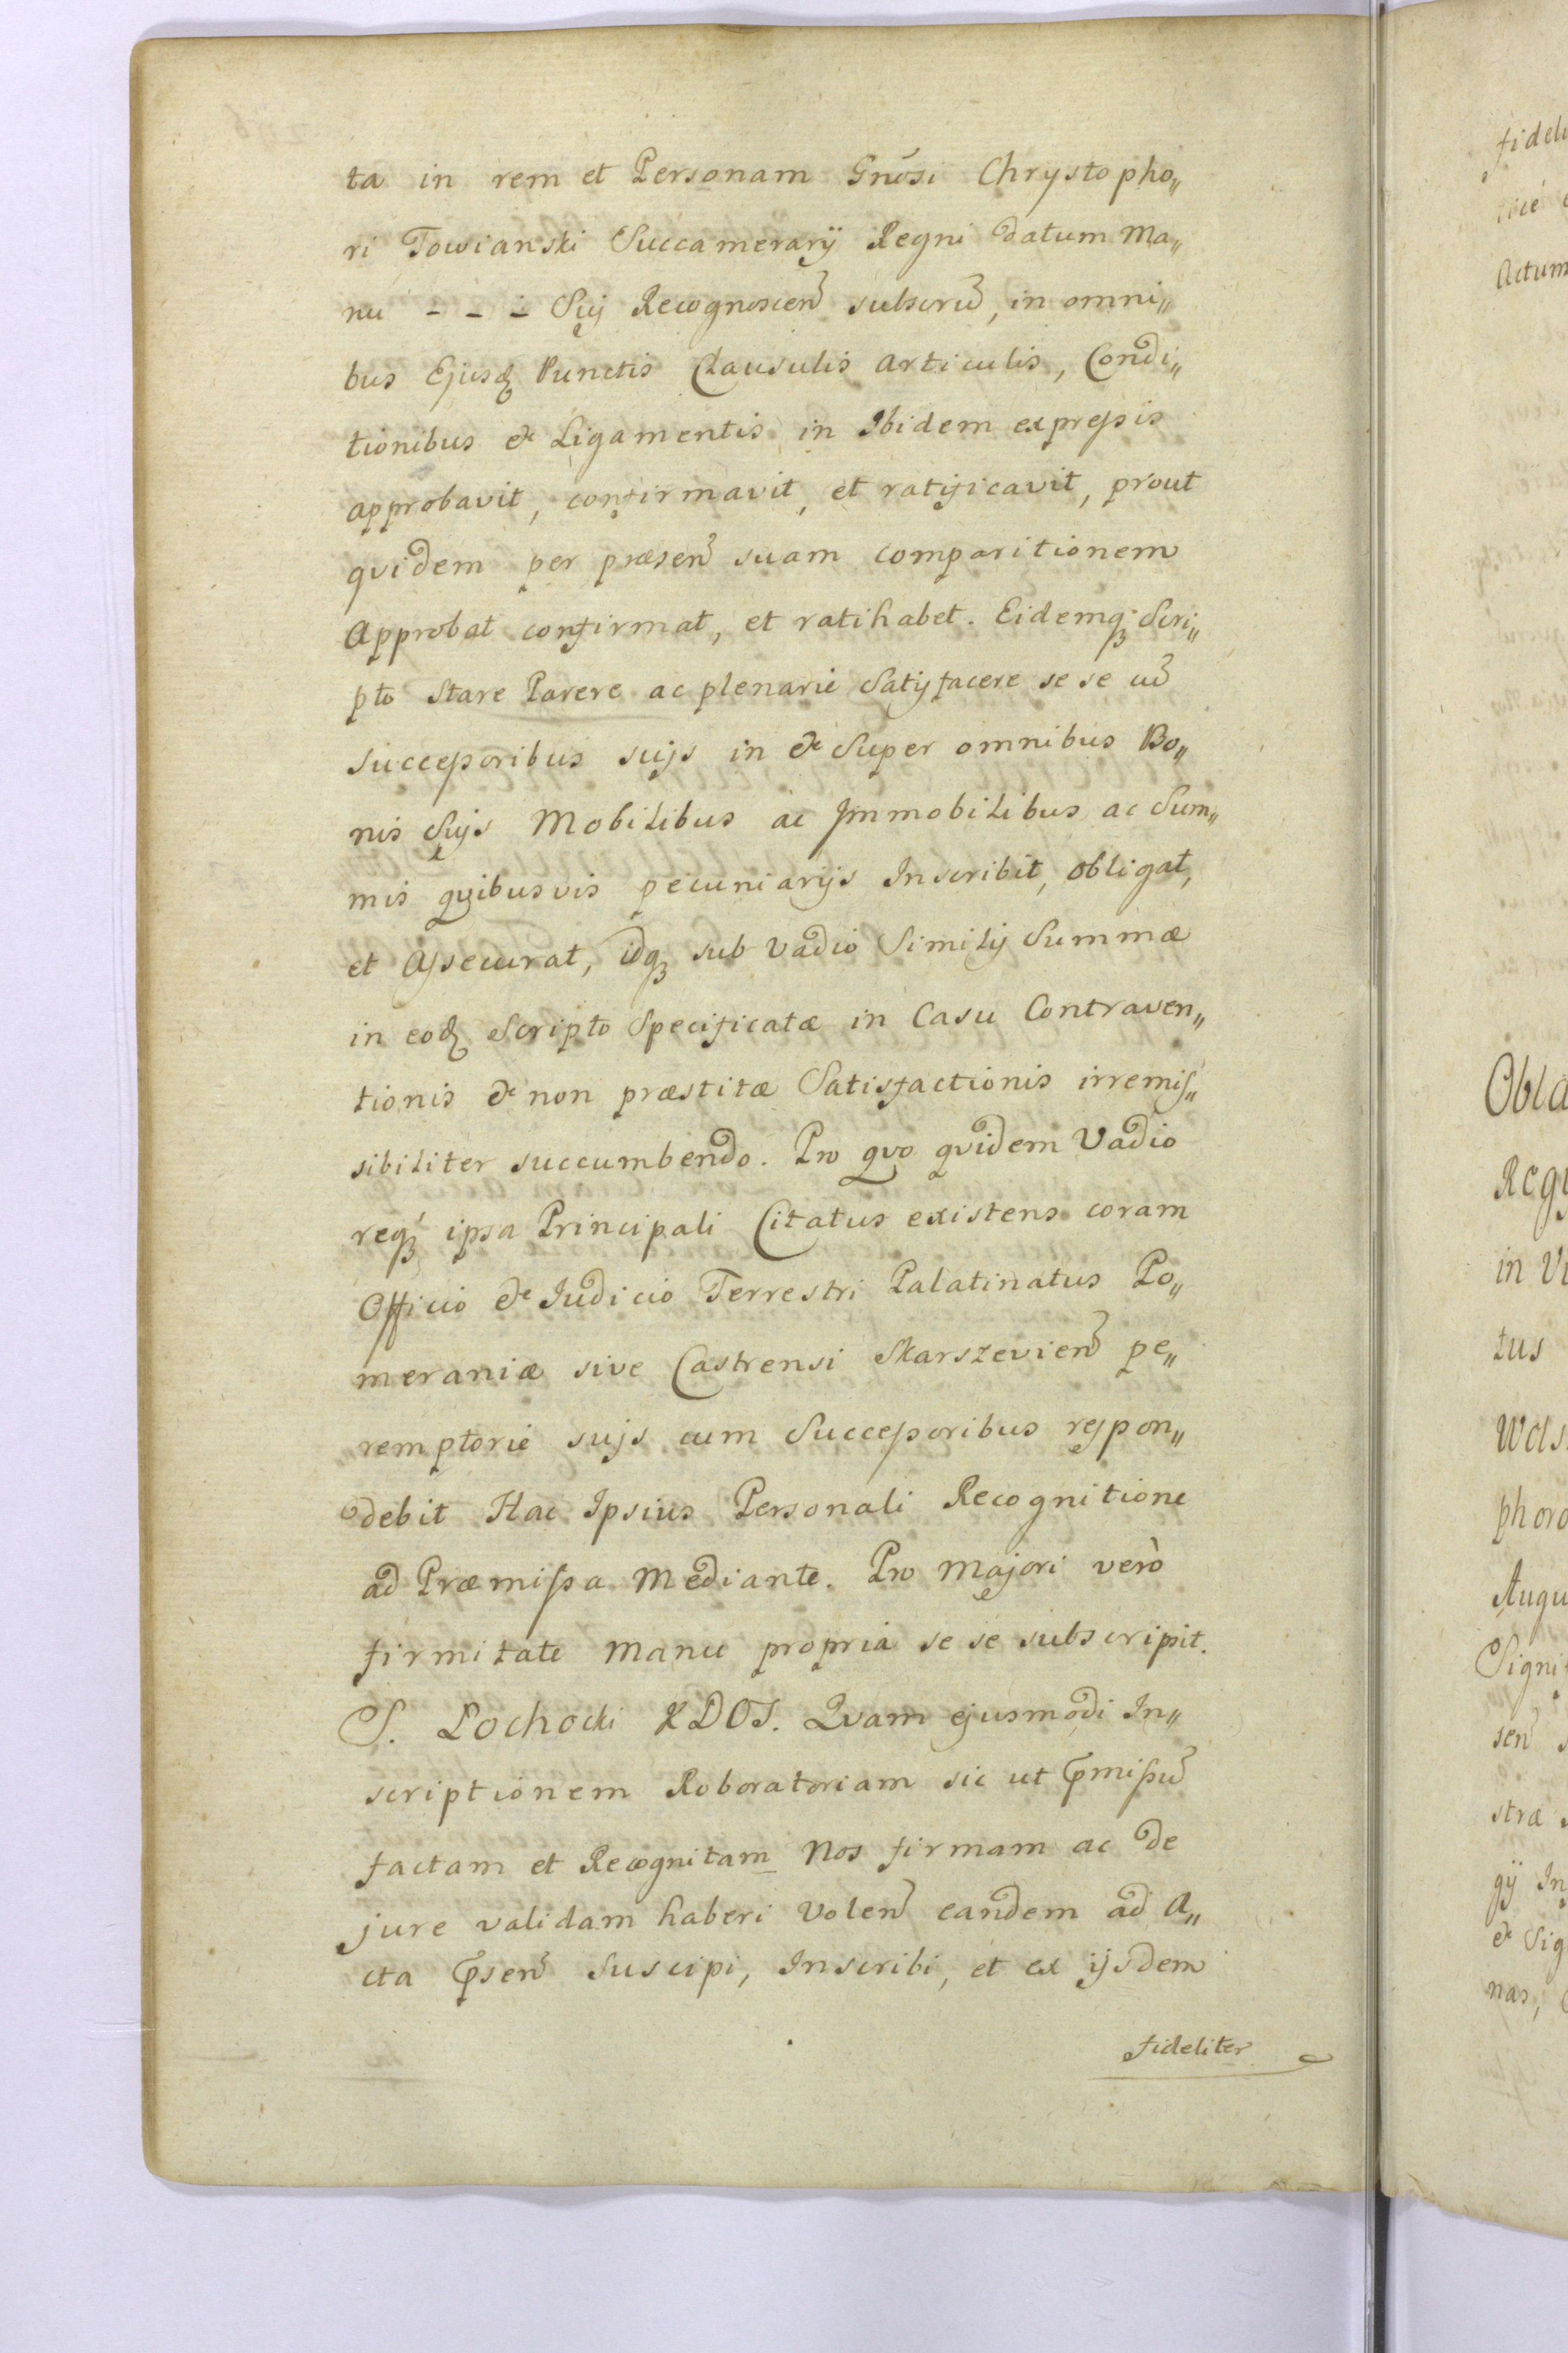 ta in rem et Personam Gnosi Chrystopho„
ri Towianski Succamerarij Regni datum Ma„
nu - - - Sui Recognoscen subscru, in omni„
bus Ejusq Punctis Clausulis articulis, Condi„
tionibus & Ligamentis in Ibidem expressis
approbavit, confirmavit, et ratificavit, prout
quidem per præsen suam comparitionem
Approbat confirmat, et ratihabet. Eidemq Scri„
pto Stare Parere ac plenarie Satisfacere se se cu
successoribus suis in & Super omnibus Bo„
nis Suis Mobilibus ac Immobilibus ac Sum„
mis quibusvis pecuniarijs Inscribit, obligat,
et Assecurat, idq sub Vadio Similis Summæ
in eod Scripto Specificatæ in Casu Contraven„
tionis & non præstitæ Satisfactionis irremis„
sibiliter succumbendo. Pro quo quidem Vadio
req ipsa Principali Citatus existens coram
Officio & Iudicio Terrestri Palatinatus Po„
meraniæ sive Castrensi Skarszevien pe„
remptorie suis cum Successoribus respon„
debit Hac Ipsius Personali Recognitione
ad Præmissa Mediante. Pro Majori verò
firmitate manu propria se se subscripsit.
S. Lochocki KDOS. Quam ejusmodi In„
scriptionem Roboratoriam sic ut Pmissu
factam et Recognitam Nos firmam ac de
jure validam haberi Volen eandem ad A„
cta Psen Suscipi, Inscribi, et ex ijsdem
fideliter
fidel
Actum
Obla
Requ
in Vi
tus
Wols
phoro
Augu
Signi
sen
stræ
gij In
& Sig
nas,